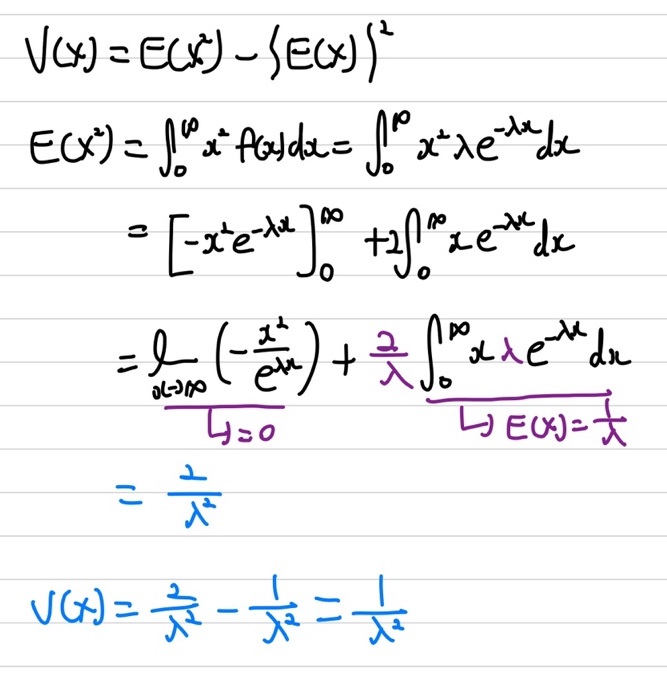 V(x) = E(x²) - {E(x)}²
E(x²) = ∫₀^∞ x² f(x) dx = ∫₀^∞ x² λe^{-λx} dx
= [-x² e^{-λx}]₀^∞ + 2∫₀^∞ x e^{-λx} dx
= lim_{x→∞} (-x²/e^{λx}) + 2/λ ∫₀^∞ x λ e^{-λx} dx
↳ = 0 ↳ E(x) = 1/λ
= 2/λ²
V(x) = 2/λ² - 1/λ² = 1/λ²